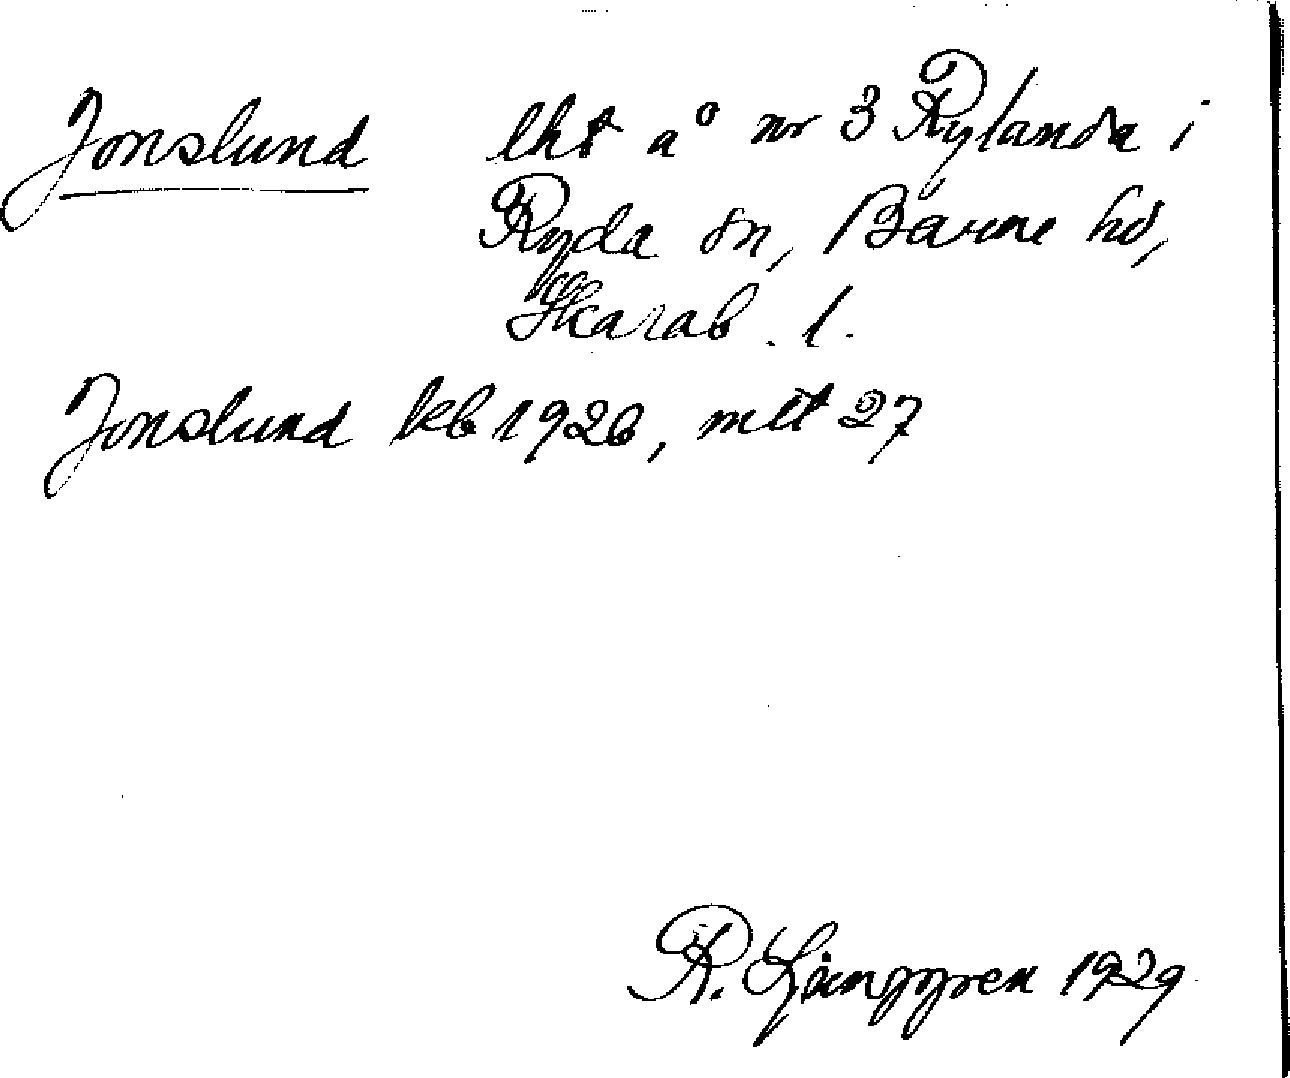 Jonslund lht å nr 3 Rylanda i
Ryda sn, Barne hd,
Skarab. l.
Jonslund kb 1926, mlt 27
R. Ljunggren 1929